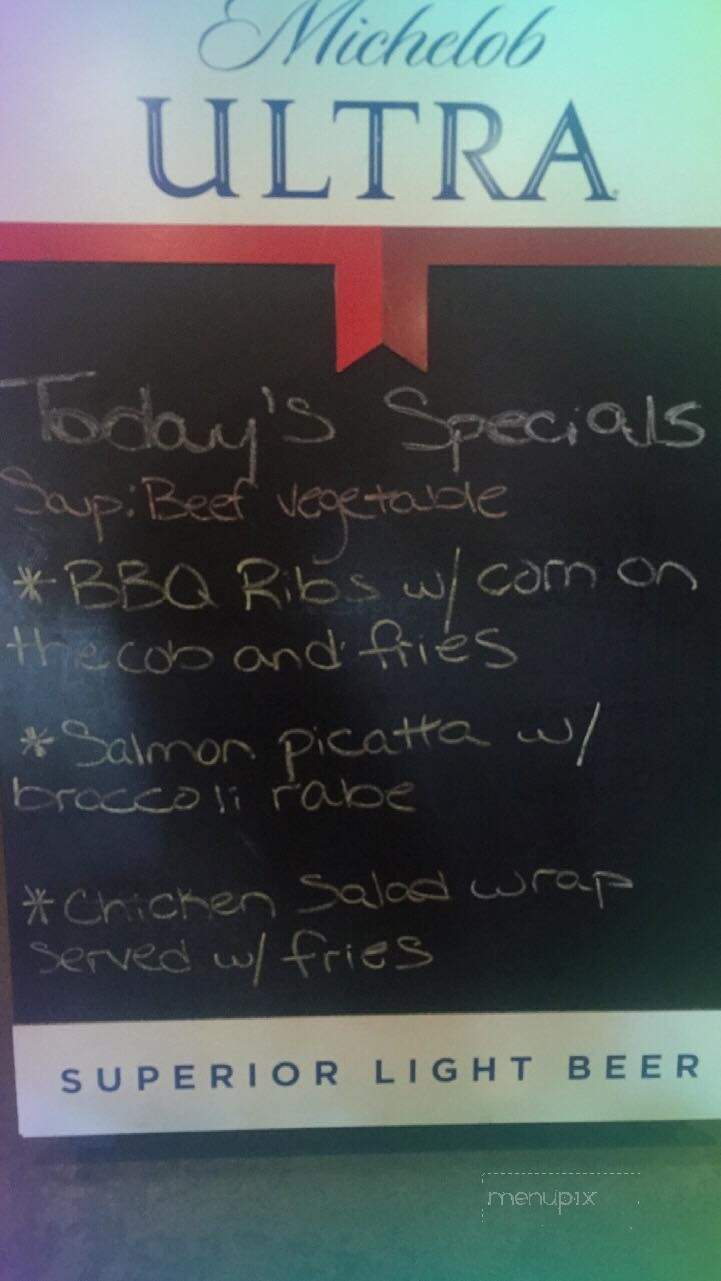 Michelob
ULTRA
Today's Specials
Soup: Beef vegetable
*BBQ Ribs w/ corn on
the cob and fries
*Salmon picatta w/
broccoli rabe
*Chicken Salad wrap
served w/ fries
SUPERIOR LIGHT BEER
menupix